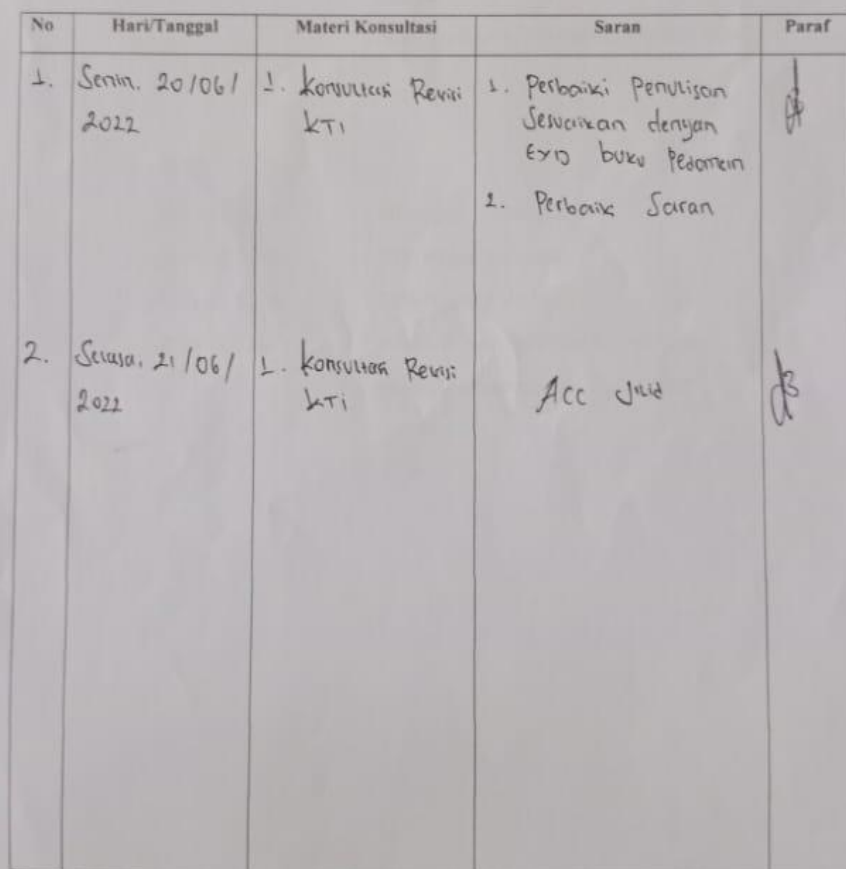 No Hari/Tanggal Materi Konsultasi Saran Paraf
1. Senin, 20/06/ 1. Konsultasi Revisi 1. Perbaiki Penulisan
2022 KTI Sesuaikan dengan
EYD buku Pedoman
2. Perbaiki Saran
2. Selasa, 21/06/ 1. Konsultasi Revisi
2022 KTI Acc Jilid